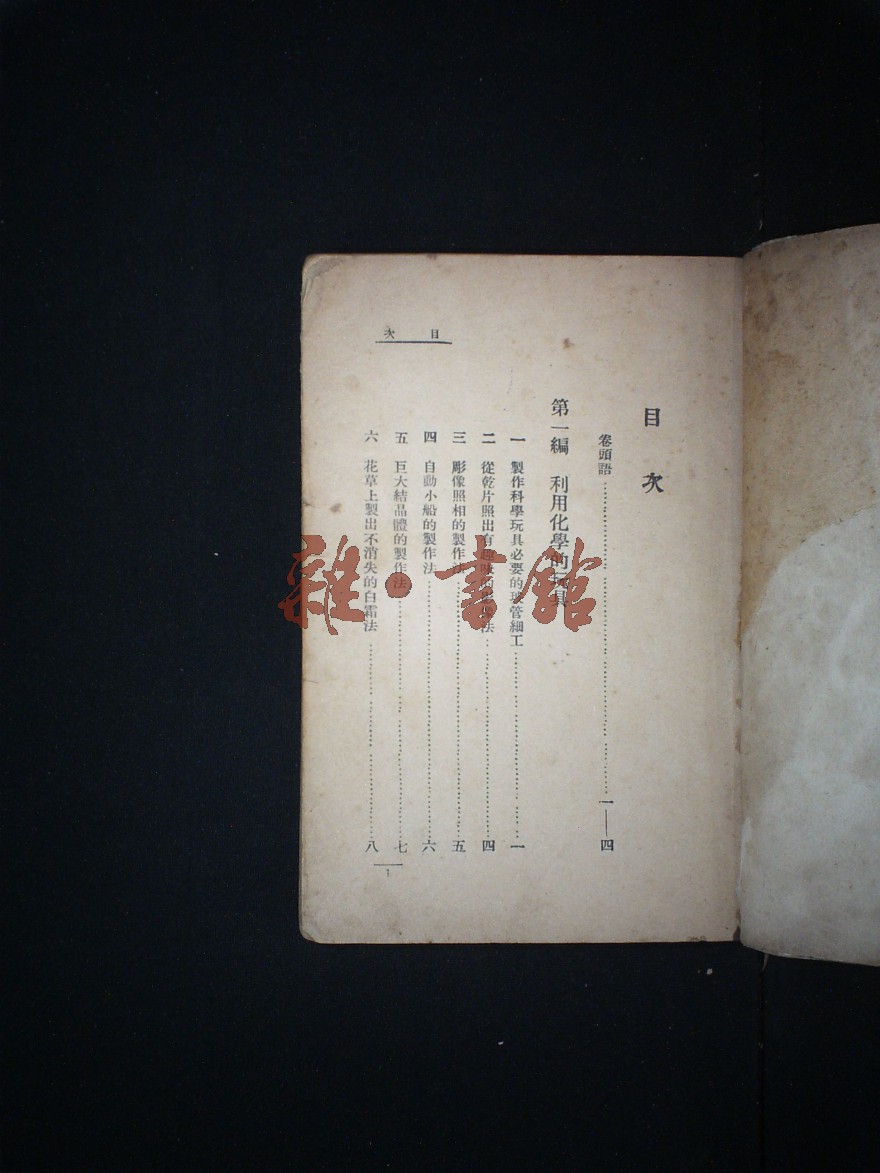 目次
卷頭語……一——四
第一編 利用化學的玩具
一 製作科學玩具必要的玻管細工……一
二 從乾片照出有趣味的 法……四
三 彫像照相的製作法……五
四 自動小船的製作法……六
五 巨大結晶體的製作法……七
六 花草上製出不消失的白霜法……八
次目
1
雜·書館